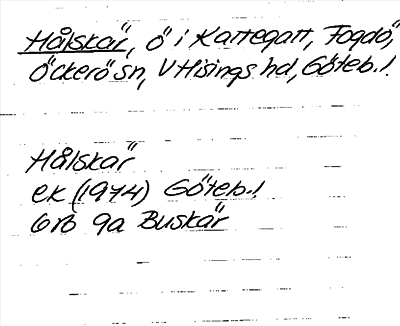 Hålskär, ö i Kattegatt, Fogdö,
Öckerö sn, V Hisings hd, Göteb.l.
Hålskär
ek (1974) Göteb.l
6rb 9a Buskär